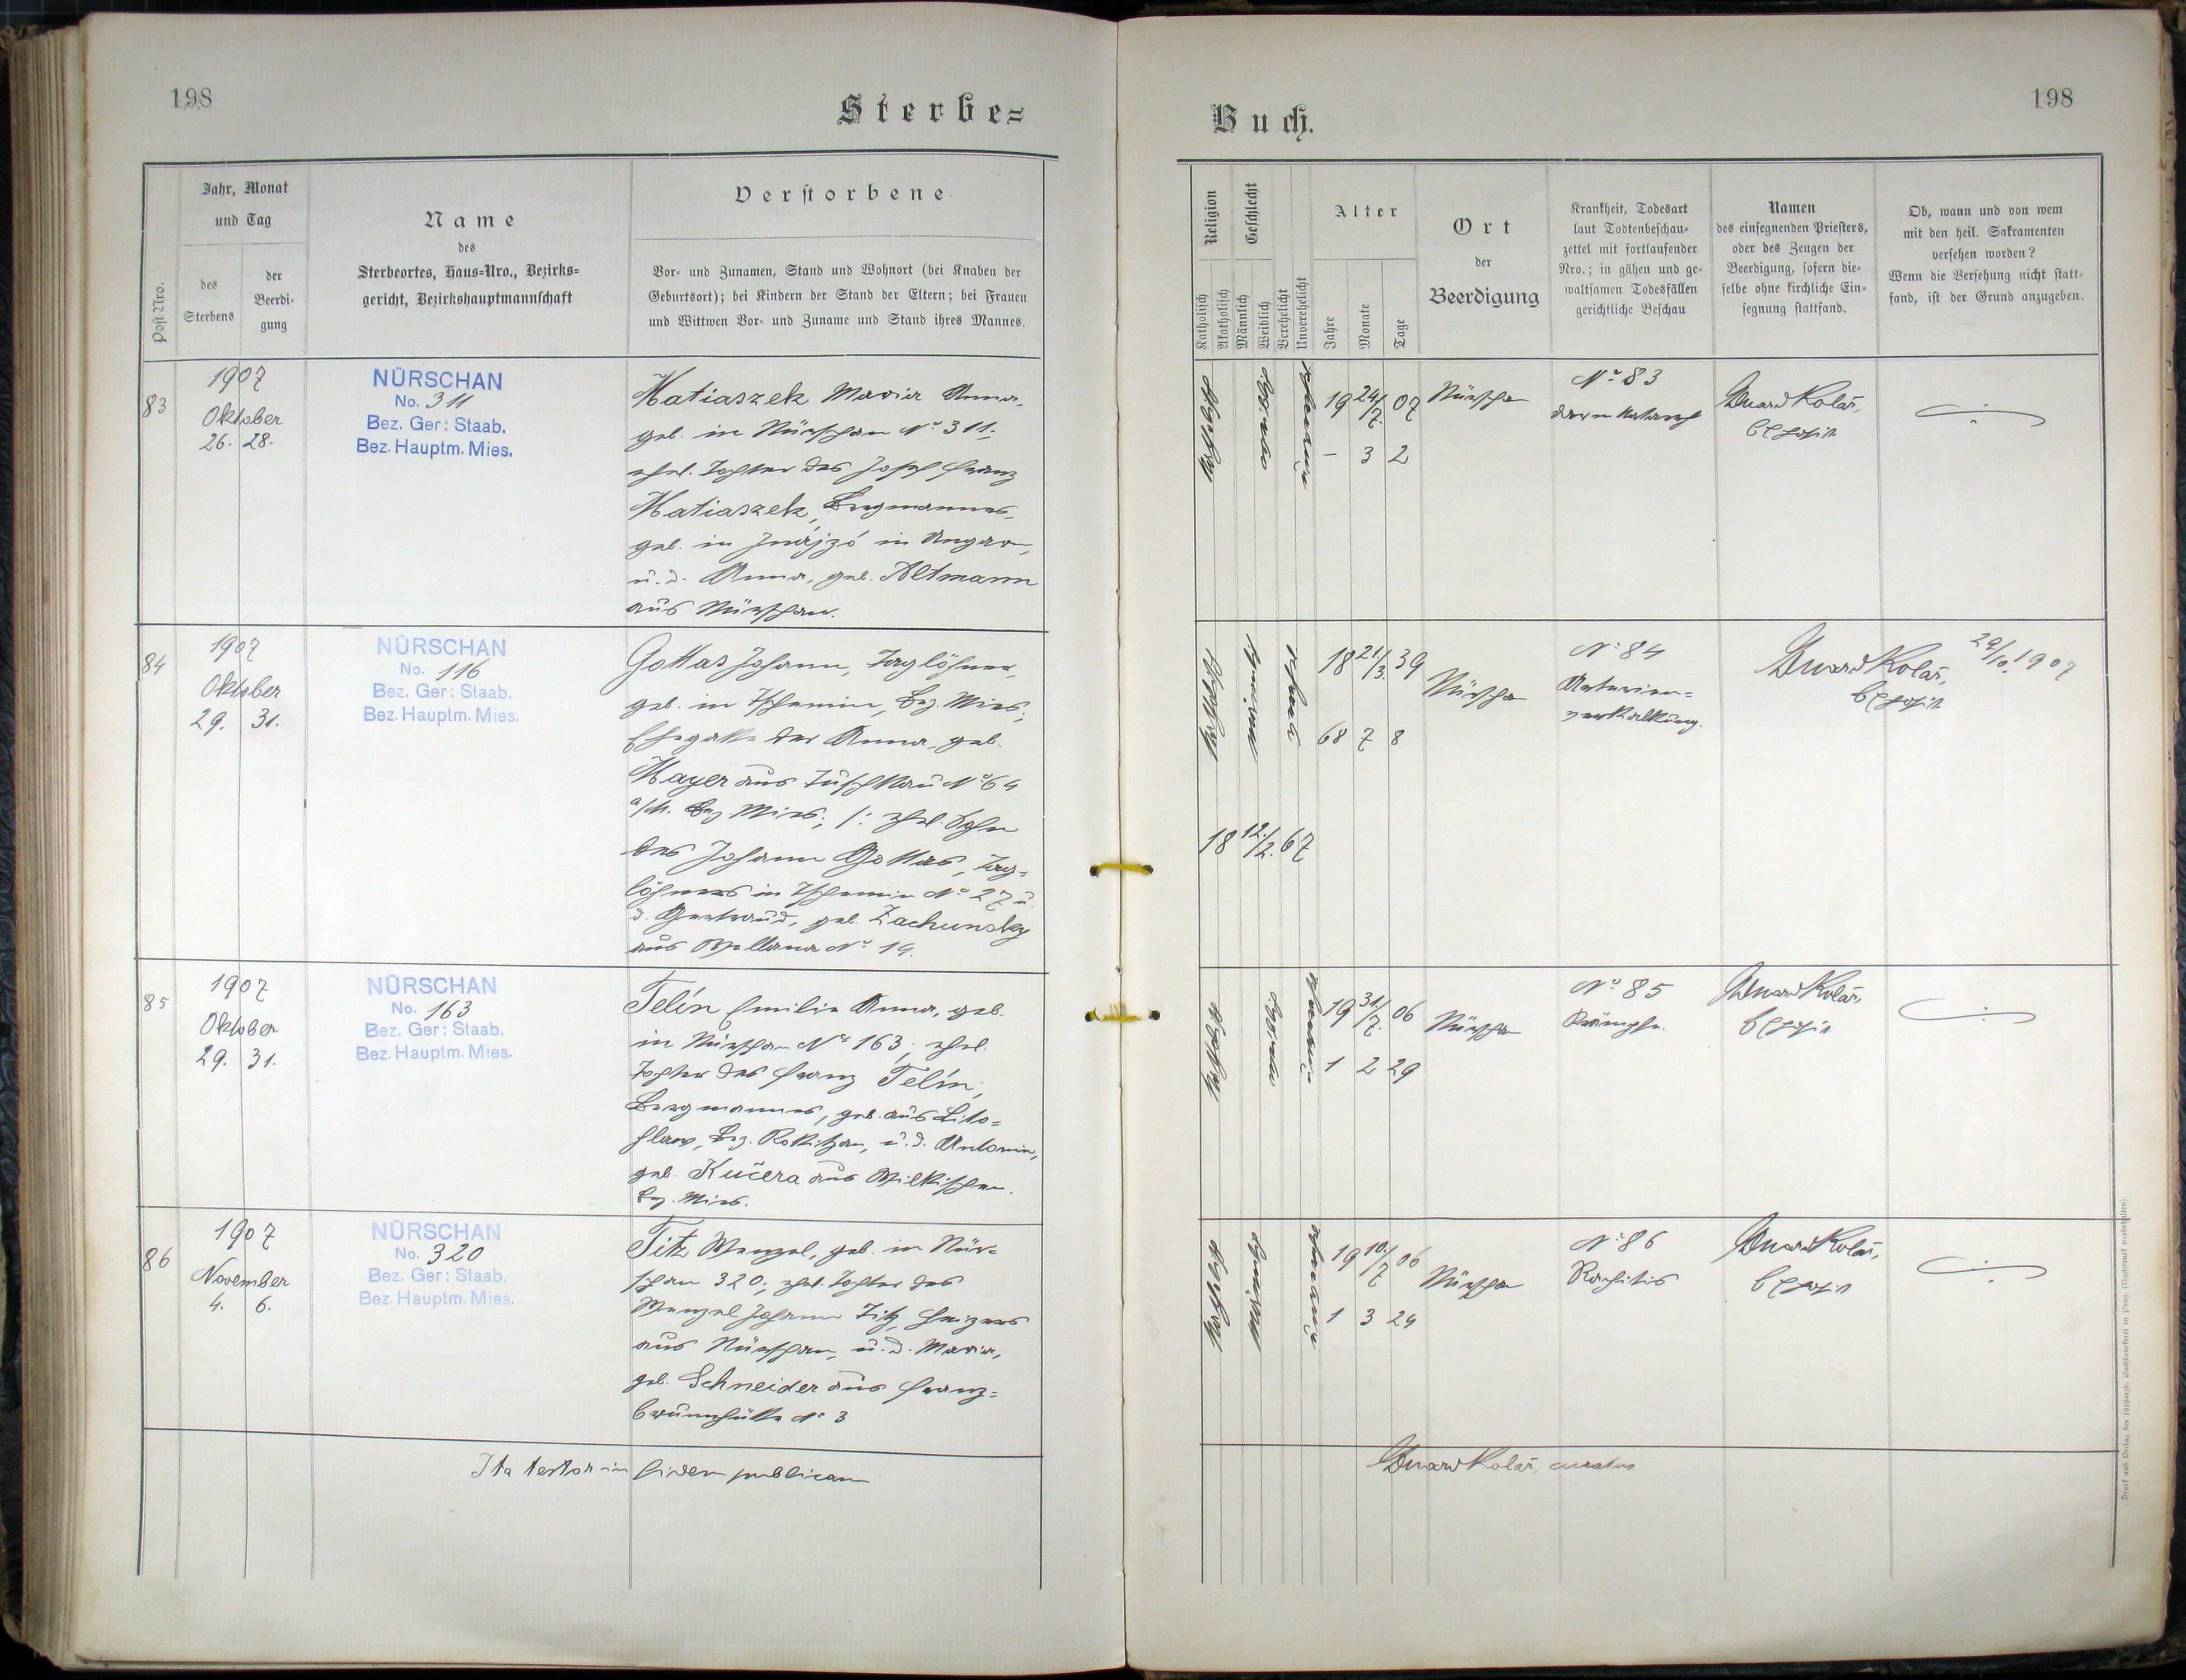 198
Sterbe=
Post-Nro.
Jahr, Monat
und Tag
des
Sterbens
der
Beerdi-
gung
Name
des
Sterbeortes, Haus-Nro., Bezirks=
gericht, Bezirkshauptmannschaft
Verstorbene
Vor- und Zunamen, Stand und Wohnort (bei Knaben der
Geburtsort); bei Kindern der Stand der Eltern; bei Frauen
und Wittwen Vor- und Zuname und Stand ihres Mannes.
83
1907
Oktober
26. 28.
NÜRSCHAN
No. 311
Bez. Ger: Staab.
Bez. Hauptm. Mies.
Matiaszek Maria Anna,
geb. in Nürschan No 311;
ehel. Tochter des Josef Franz
Matiaszek, Bergmannes,
geb. in in Ungarn,
u. d. Anna, geb. Altmann
aus Nürschan.
84
1907
Oktober
29. 31.
NÜRSCHAN
No. 116
Bez. Ger: Staab.
Bez. Hauptm. Mies.
Gottas Johann, Taglöhner,
geb. in Tschemin, Bez. Mies;
Ehegatte der Anna, geb.
Mayer aus Tuschkau No 64
a/M. Bez Mies; /: ehel. Sohn
des Johann Gottas, Tag=
löhners in Tschemin No 27 u.
d. Gertraud, geb. Zachunsky
aus No 14.
85
1907
Oktober
29. 31.
NÜRSCHAN
No. 163
Bez. Ger: Staab.
Bez. Hauptm. Mies.
Telín Emilie Anna, geb.
in Nürschan No 163; ehel.
Tochter des Franz Telín,
Bergmannes, geb. aus Lito=
hlaw, Bez. Rokitzan, u. d. Antonia,
geb. Kučera aus Wilkischen.
Bez. Mies.
86
1907
November
4. 6.
NÜRSCHAN
No. 320
Bez. Ger: Staab.
Bez. Hauptm. Mies.
Titz Wenzel, geb. in Nür=
schan 320; ehel. Tochter des
Wenzel Johann Titz, Heizers
aus Nürschan, u. d. Maria,
geb. Schneider aus Franz=
brunnhütte No 3
Ita testor in fidem publicam
198
Buch.
Religion
Katholisch
Akatholisch
Geschlecht
Männlich
Weiblich
Verehelicht
Unverehelicht
Alter
Jahre
Monate
Tage
Ort
der
Beerdigung
Krankheit, Todesart
laut Todtenbeschau-
zettel mit fortlaufender
Nro.; in gähen und ge-
waltsamen Todesfällen
gerichtliche Beschau
Namen
des einsegnenden Priesters,
oder des Zeugen der
Beerdigung, sofern die-
selbe ohne kirchliche Ein-
segnung stattfand.
Ob, wann und von wem
mit den heil. Sakramenten
versehen worden?
Wenn die Versehung nicht statt-
fand, ist der Grund anzugeben.
19 24/7. 07
– 3 2
Nürschan
No 83
Darmkatarrh
Eduard Kolář,
18 21/3. 39
68 7 8
18 12./2. 67
Nürschan
No 84
Arterien=
verkalkung.
Eduard Kolář, 29/10. 1907
19 31/7. 06
1 2 29
Nürschan
No 85
Krämpfe.
Eduard Kolář,
19 10./7 06
1 3 24
Nürschan
No 86
Rachitis
Eduard Kolář,
Eduard Kolář, curatus
Druck und Verlag der fürsterzb. Buchdruckerei in Prag. (Nachdruck vorbehalten).